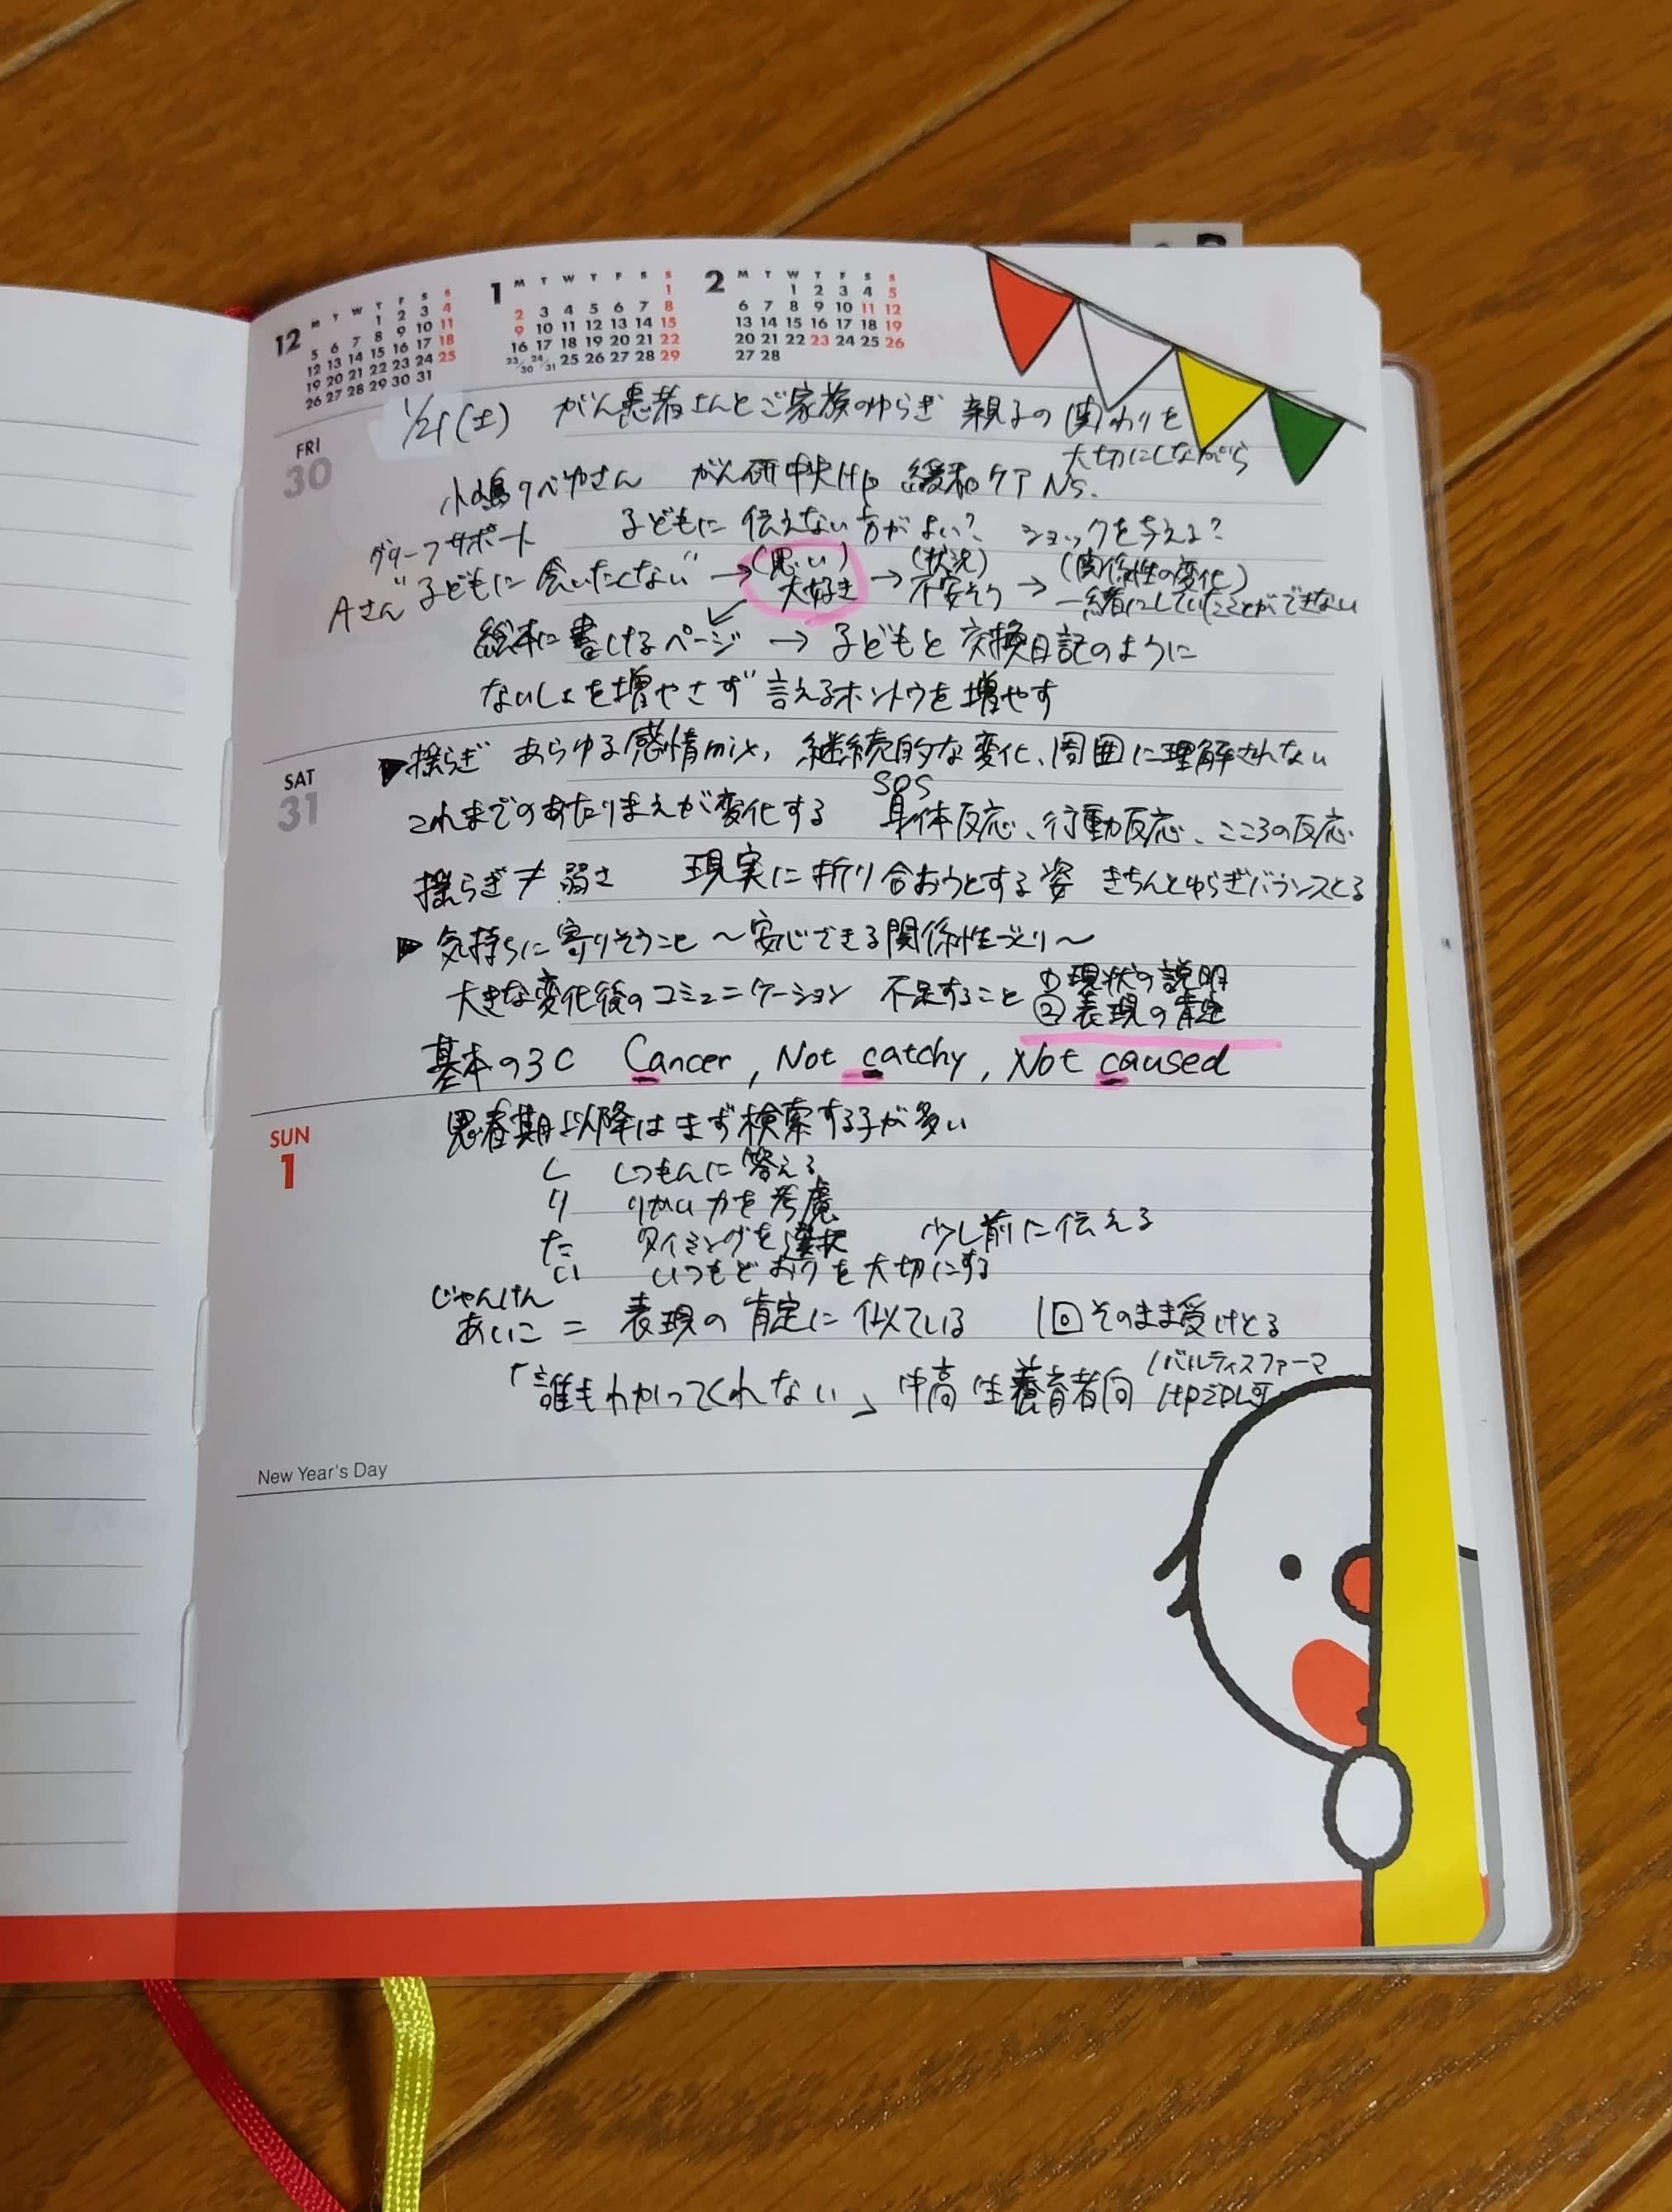 12
M T W T F S S
1 2 3 4
5 6 7 8 9 10 11
12 13 14 15 16 17 18
19 20 21 22 23 24 25
26 27 28 29 30 31
1
M T W T F S S
1
2 3 4 5 6 7 8
9 10 11 12 13 14 15
16 17 18 19 20 21 22
23/30 24/31 25 26 27 28 29
2
M T W T F S S
1 2 3 4 5
6 7 8 9 10 11 12
13 14 15 16 17 18 19
20 21 22 23 24 25 26
27 28
(土) がん患者さんとご家族のゆらぎ 親子の関わりを
大切にしながら
FRI
30
小嶋リベカさん がん研中央Hp 緩和ケアNs.
グリーフサポート 子どもに伝えない方がよい? ショックを与える?
Aさん "子どもに会いたくない" → (思い) 大好き → (状況) 不安そう → (関係性の変化) 一緒にしていたことができない
絵本に書けるページ → 子どもと交換日記のように
ないしょを増やさず 言えるホントウを増やす
SAT
31
▶揺らぎ あらゆる感情mix, 継続的な変化、周囲に理解されない
SOS
これまでのあたりまえが変化する 身体反応、行動反応、こころの反応
揺らぎ≠弱さ 現実に折り合おうとする姿 きちんとゆらぎバランスとる
▶気持ちに寄りそうこと 〜安心できる関係性づくり〜
大きな変化後のコミュニケーション 不足すること ①現状の説明
②表現の肯定
基本の3C Cancer, Not catchy, Not caused
SUN
1
思春期以降はまず検索する子が多い
し しつもんに答える
り りかい力を考慮
た タイミングを選択 少し前に伝える
い いつもどおりを大切にする
じゃんけん
あいこ = 表現の肯定に似ている 1回そのまま受けとる
「誰もわかってくれない」 中高生養育者向 ノバルティスファーマ
HpでDL可
New Year's Day